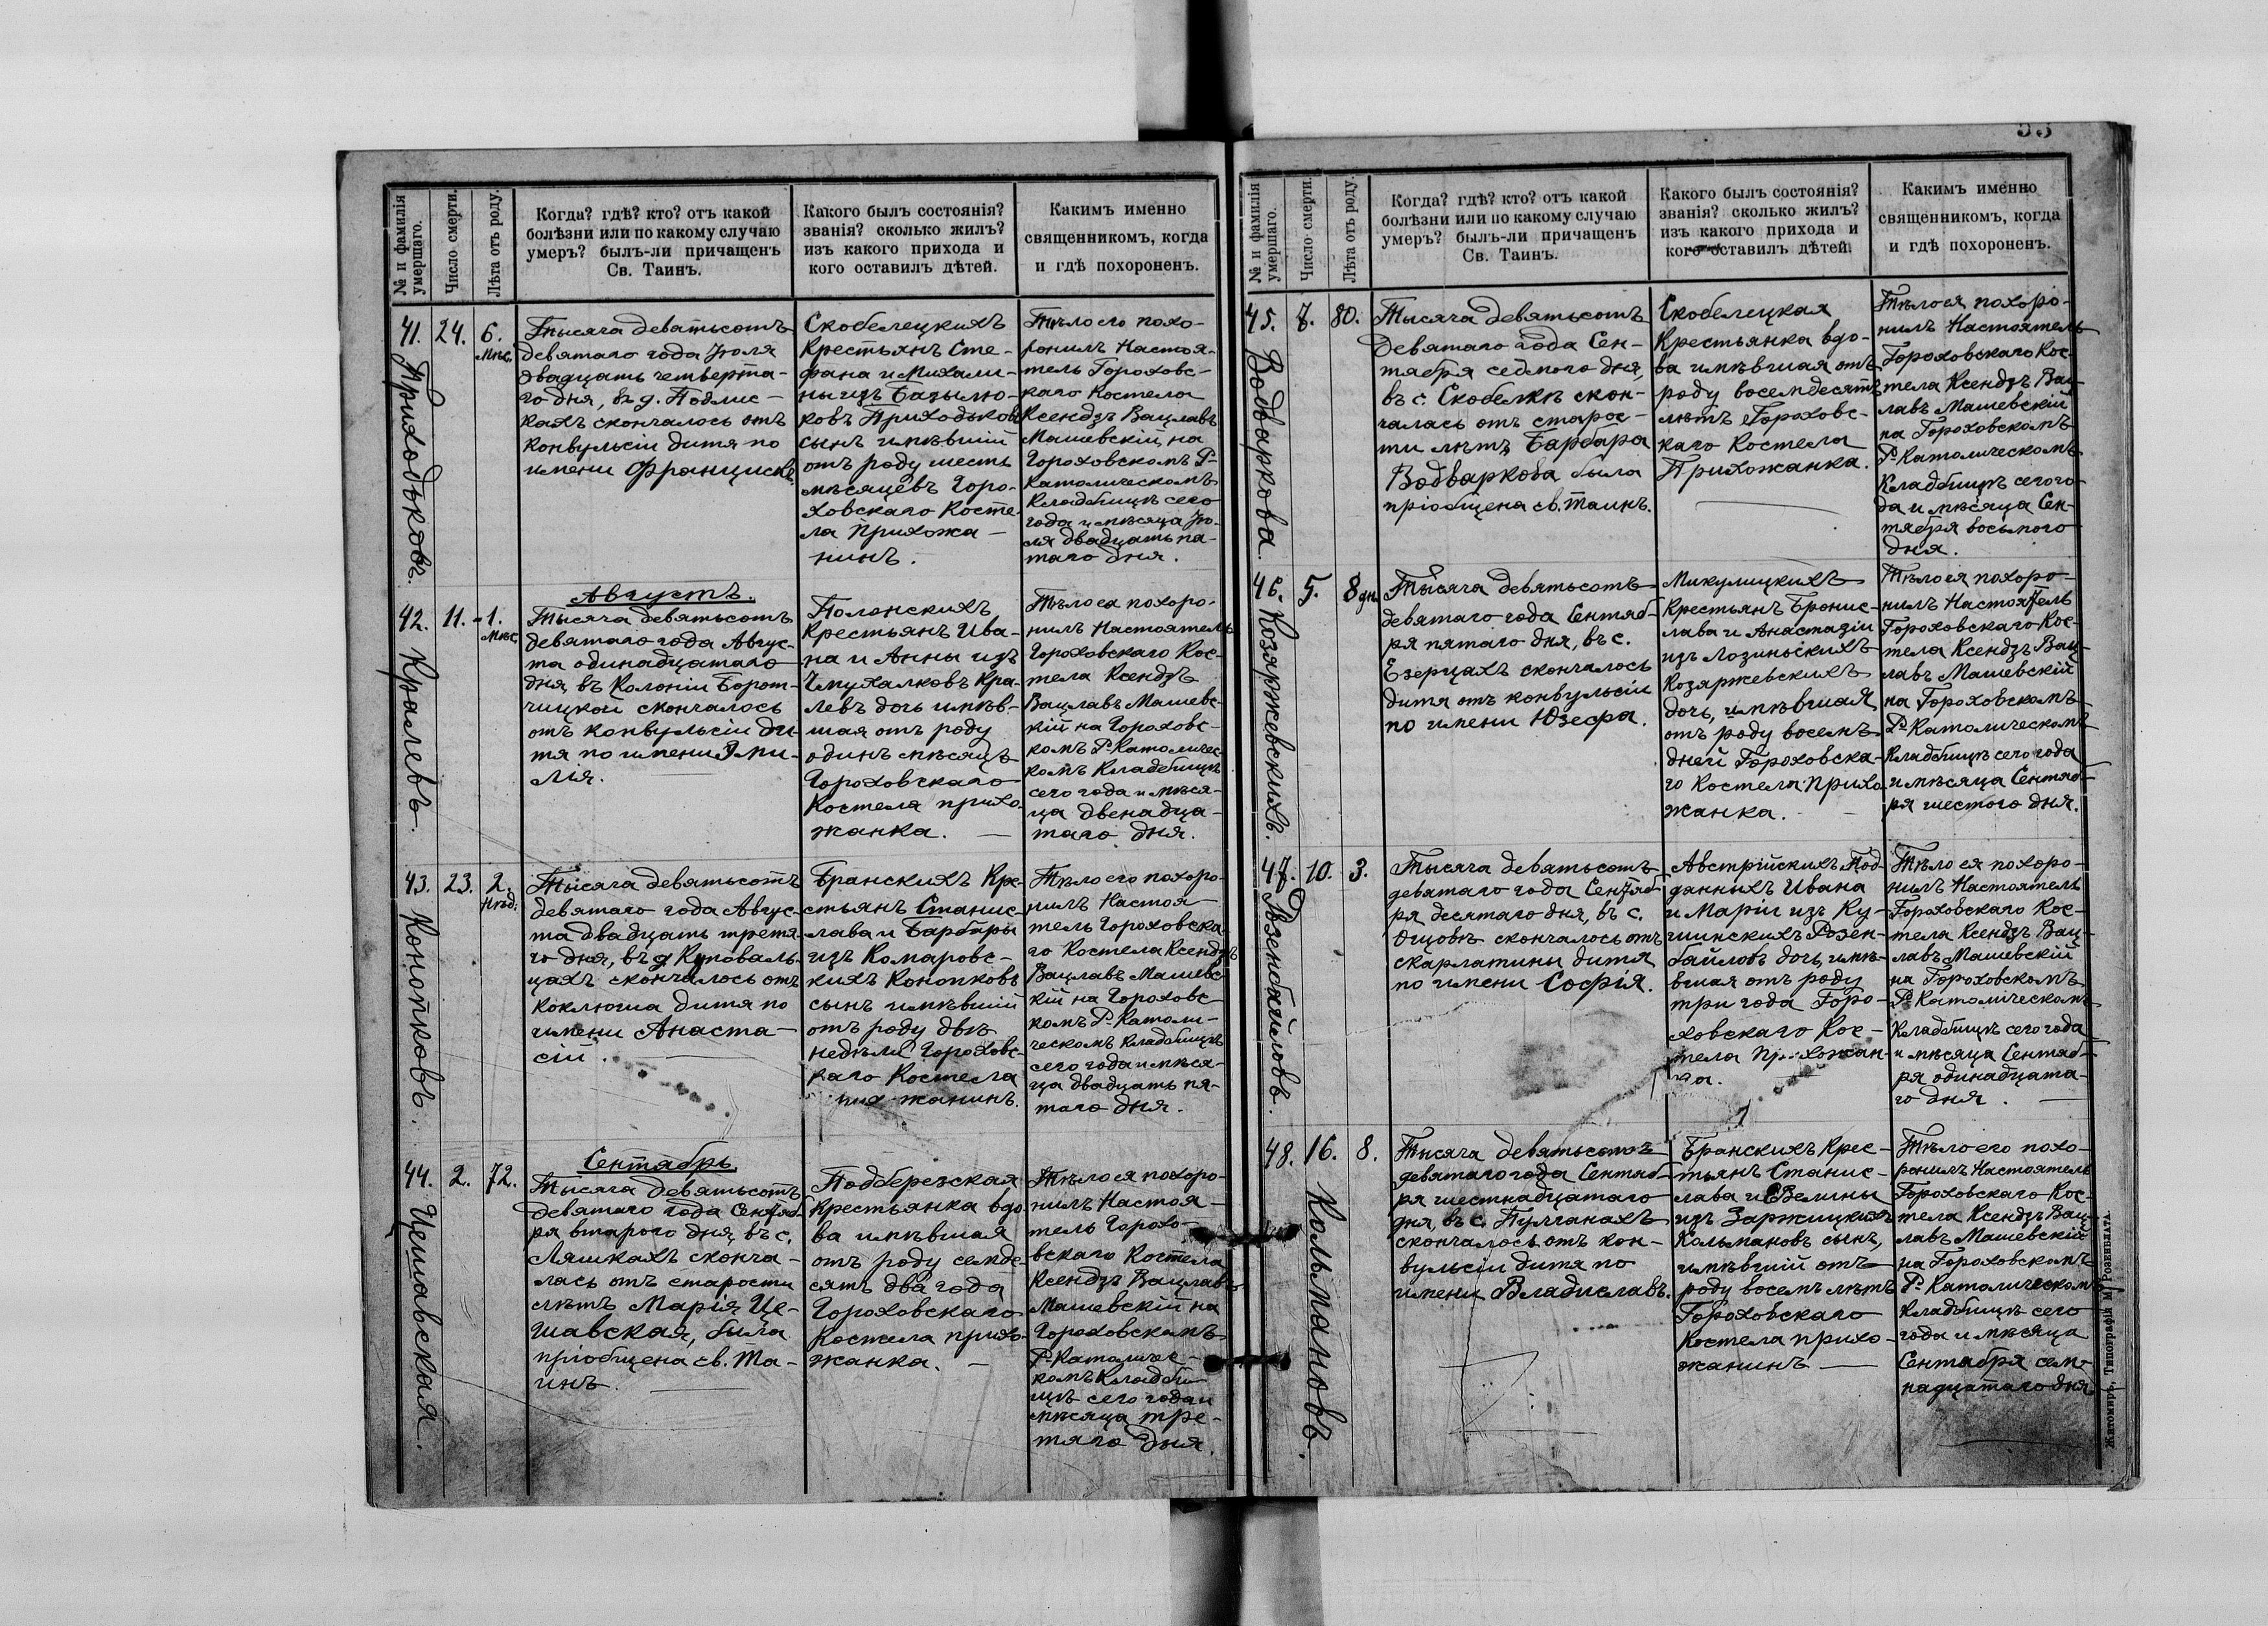 № и фамилія
умершаго.
Число смерти.
Лѣта отъ роду.
Когда? гдѣ? кто? отъ какой
болѣзни или по какому случаю
умеръ? былъ-ли причащенъ
Св. Таинъ.
Какого былъ состоянія?
званія? сколько жилъ?
изъ какого прихода и
кого оставилъ дѣтей.
Какимъ именно
священникомъ, когда
и гдѣ похороненъ.
41.
Приходьковъ.
24.
6.
мѣс.
Тысяча деватьсотъ
девятаго года Іюля
двадцать четверта-
го дня, въ д. Подлис-
кахъ скончалось отъ
конвульсіи дитя по
имени Францискъ.
Скобелецкихъ
Крестьянъ Сте-
фана и Михали-
ны изъ Базылю-
ковъ Приходьковъ
сынъ имѣвшій
отъ роду шесть
мѣсяцевъ Горо-
ховскаго Косте-
ла Прихожа-
нинъ.
Тѣло его похо-
ронилъ Настоя-
тель Гороховс-
каго Костела
Ксендзъ Вацлавъ
Машевскій на
Гороховскомъ Р-
Католическомъ
Кладбищѣ сего
года и мѣсяца Ію-
ля двадцать пя-
таго дня.
Августъ.
42.
Кралевъ.
11.
1.
мѣс.
Тысяча девятьсотъ
девятаго года Авгус-
та одинадцатаго
дня, въ Колоніи Борот-
чицкой скончалось
отъ конвульсіи ди-
тя по имени Эми-
лія.
Полонскихъ
Крестьянъ Ива-
на и Анны изъ
Чмухалковъ Кра-
левъ дочь имѣв-
шая отъ роду
одинъ мѣсяцъ
Гороховскаго
Костела прихо-
жанка.
Тѣло ея похоро-
нилъ Настоятель
Гороховскаго Кос-
тела Ксендзъ
Вацлавъ Машевс-
кій на Гороховс-
комъ Р-Католичес-
комъ Кладбищѣ
сего года и мѣся-
ца двенадца-
таго дня.
43.
Конопковъ.
23.
2.
нѣд.
Тысяча девятьсотъ
девятаго года Авгус-
та двадцать третя-
го дня, въ д. Куповаль-
цахъ скончалось отъ
коклюша дитя по
имени Анаста-
сій.
Бранскихъ Кре-
стьянъ Станис-
лава и Барбары
изъ Комаровс-
кихъ Конопковъ
сынъ имѣвшій
отъ роду двѣ
недѣли Гороховс-
каго Костела
жанинъ.
Тѣло его похоро-
нилъ Настоя-
тель Гороховска-
го Костела Ксендзъ
Вацлавъ Машевс-
кій на Гороховс-
комъ Р-Католи-
ческомъ Кладбищѣ
сего года и мѣся-
ца двадцать пя-
таго дня.
Сентябрь.
44.
Цешавская.
2.
72.
Тысяча девятьсотъ
девятаго года Сентяб-
ря втараго дня, въ с.
Ляшкахъ сконча-
лась отъ старости
лѣтъ Марія Це-
шавская, была
пріобщена св. Та-
инъ.
Подбережская
Крестьянка вдо-
ва имѣвшая
отъ роду семде-
сятъ два года
Гороховскаго
Костела прихо-
жанка.
Тѣло ея похоро-
нилъ Настоя-
тель Горохо-
вскаго Костела
Ксендзъ Вацлавъ
Машевскій на
Гороховскомъ
Р-Католичес-
комъ Кладби-
щѣ сего года и
мѣсяца тре-
тяго дня.
№ и фамилія
умершаго.
Число смерти.
Лѣта отъ роду.
Когда? гдѣ? кто? отъ какой
болѣзни или по какому случаю
умеръ? былъ-ли причащенъ
Св. Таинъ.
Какого былъ состоянія?
званія? сколько жилъ?
изъ какого прихода и
кого оставилъ дѣтей.
Какимъ именно
священникомъ, когда
и гдѣ похороненъ.
45.
Водваркова.
7.
80.
Тысяча девятьсотъ
девятаго года Сен-
тября седмого дня,
въ с. Скобелкѣ скон-
чалась отъ старос-
ти лѣтъ Барбара
Водваркова была
пріобщена св. таинъ.
Скобелецкая
Крестьянка вдо-
ва имѣвшая отъ
роду восемдесятъ
лѣтъ Гороховс-
каго Костела
Прихожанка.
Тѣло ея похоро-
нилъ Настоятель
Гороховскаго Кос-
тела Ксендзъ Вац-
лавъ Машевскій
на Гороховскомъ
Р-Католическомъ
Кладбищѣ сего го-
да и мѣсяца Сен-
тября восьмого
дня.
46.
Козяржевскихъ.
5.
8 дн.
Тысяча девятьсотъ
девятаго года Сентяб-
ря пятаго дня, въ с.
Езерцахъ скончалось
дитя отъ конвульсіи
по имени Юзефа.
Микулицкихъ
Крестьянъ Бронис-
лава и Анастазіи
изъ Лозиньскихъ
Козяржевскихъ
дочь, имѣвшая
отъ роду восемъ
дней Гороховска-
го Костела Прихо-
жанка.
Тѣло ея похоро-
нилъ Настоятель
Гороховскаго Кос-
тела Ксендзъ Вац-
лавъ Машевскій
на Гороховскомъ
Р-Католическомъ
Кладбищѣ сего года
и мѣсяца Сентяб-
ря шестого дня.
47.
Розенбайловъ.
10.
3.
Тысяча девятьсотъ
девятаго года Сентяб-
ря десятаго дня, въ с.
скончалось отъ
скарлатины дитя
по имени Софія.
Австрійскихъ Под-
данныхъ Ивана
и Маріи изъ Ку-
шинскихъ Розен-
байловъ дочь, имѣ-
вшая отъ роду
три года Горо-
ховскаго Кос-
тела Прихожан-
ка.
Тѣло ея похоро-
нилъ Настоятель
Гороховскаго Кос-
тела Ксендзъ Вац-
лавъ Машевскій
на Гороховскомъ
Р-Католическомъ
Кладбищѣ сего года
и мѣсяца Сентяб-
ря одинадцата-
го дня.
48.
Кольмановъ.
16.
8.
Тысяча девятьсотъ
девятаго года Сентяб-
ря шестнадцатаго
дня, въ с. Пулганахъ
скончалось отъ кон-
вульсіи дитя по
имени Владиславъ.
Бранскихъ Крес-
тьянъ Станис-
лава и Эвелины
изъ Заржицкихъ
Кольмановъ сынъ,
имѣвшій отъ
роду восемъ лѣтъ
Гороховскаго
Костела прихо-
жанинъ
Тѣло его похо-
ронилъ Настоятель
Гороховскаго Кос-
тела Ксендзъ Вац-
лавъ Машевскій
на Гороховскомъ
Р-Католическомъ
Кладбищѣ сего
года и мѣсяца
Сентября сем-
надцатаго дня
Житомиръ, Типографія М. Розенблата.